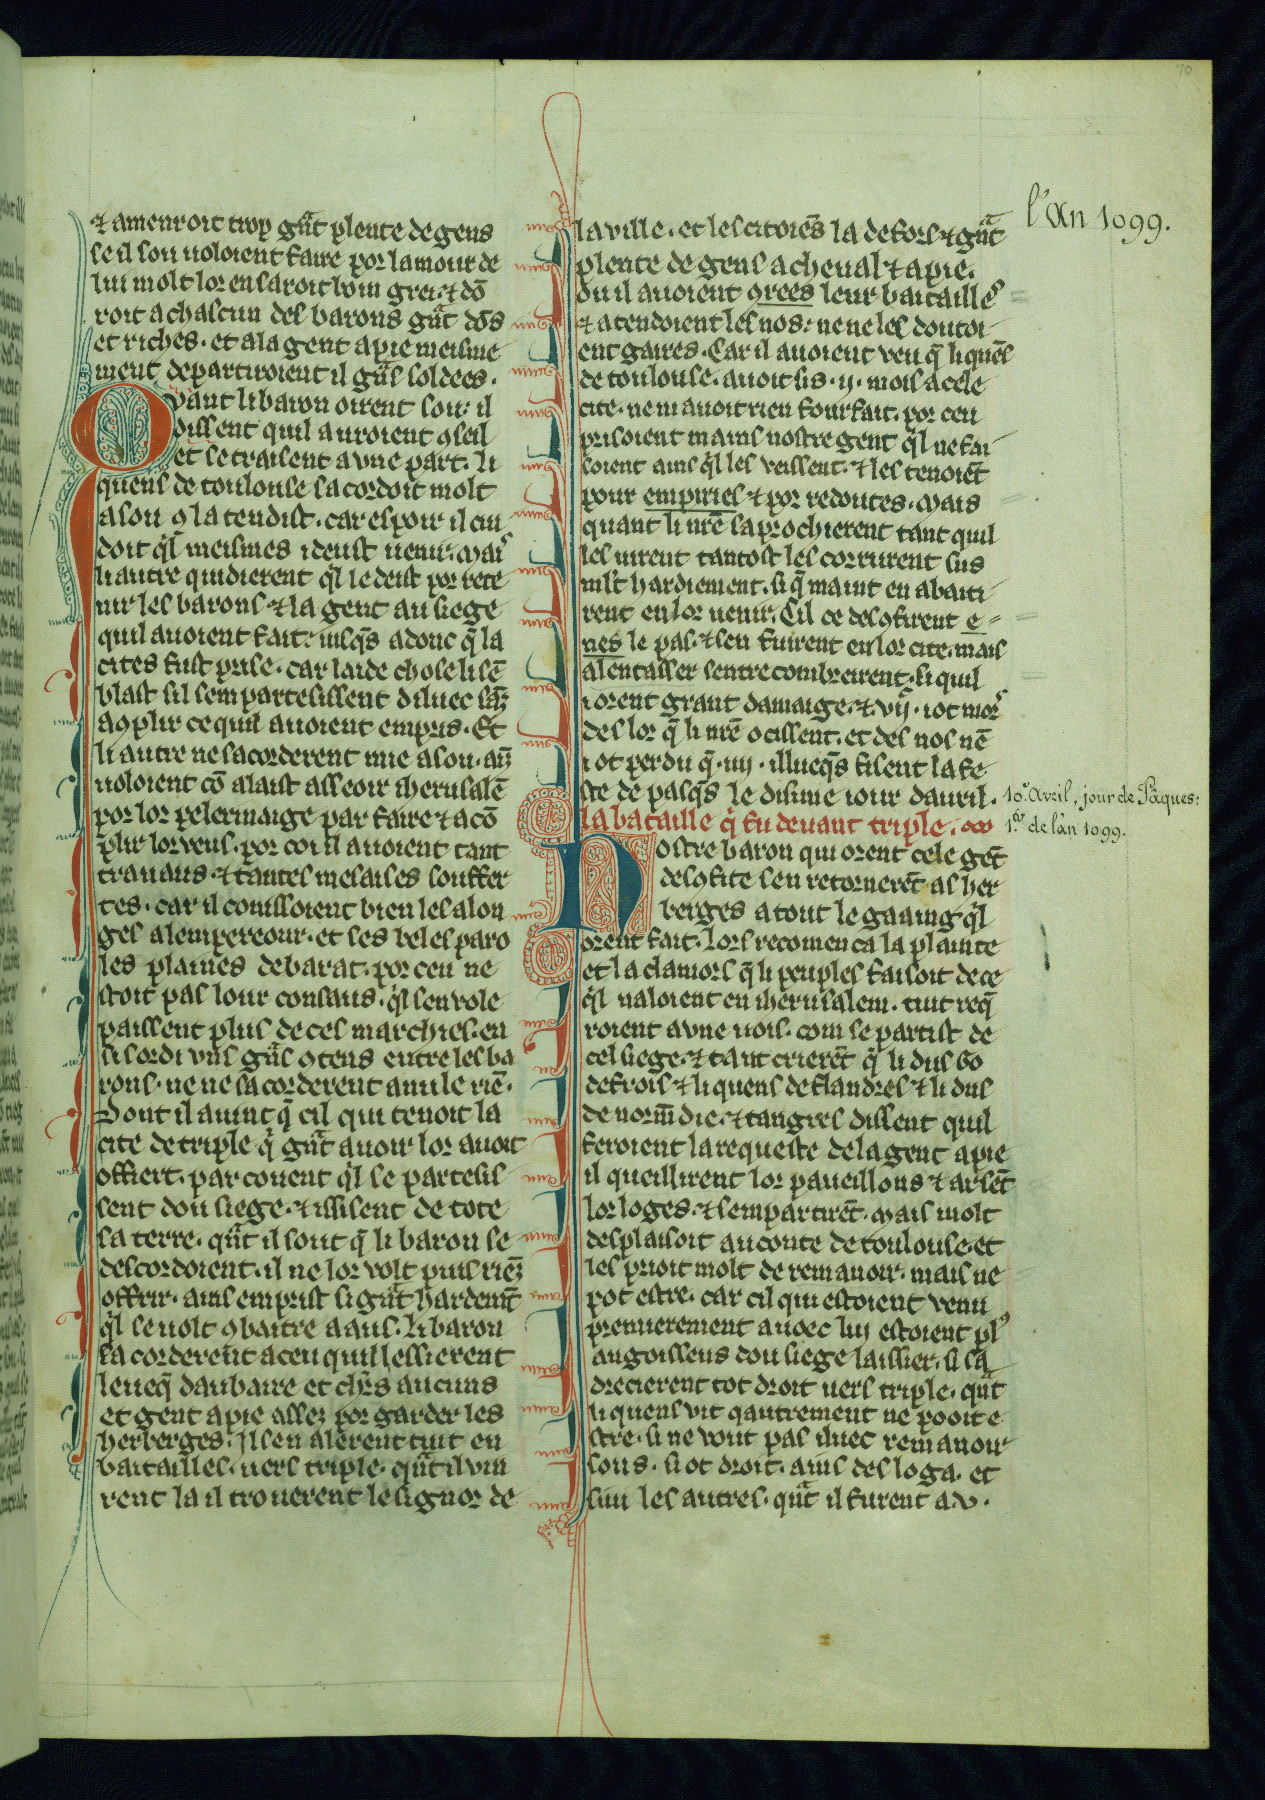 70
l'An 1099.
⁊ amenroit trop gñt plente de gens
se il sou uoloient faire por lamour de
lui molt lor en saroit boin grei. ⁊ dō
roit a chascun des barons gñt dōs
et riches. et a la gent a pie meisme
ment departiroient il grãs soldees.
Qvant li baron oirent sou. il
dissent quil auroient ꝯseil
et se traisent a vne part. li
quens de toulouse sacordoit molt
a sou ꝯ latendist. car espoir il cui
doit ql meismes i deust uenir. mais
li autre quidierent ql le deist por rete
nir les barons ⁊ la gent au siege
quil auoient fait. iusqs adonc q̄ la
cites fust prise. car laide chose li sē
blast sil sempartesissent diluec sãz
aꝯplir ce quil auoient empris. Et
li autre ne sacorderent mie a sou. aīz
uoloient cō alaist asseoir iherusalē
por lor pelermaige par faire ⁊ acō
plir lor veus. por coi il auoient tant
trauaus ⁊ tantes mesaises souffer
tes. car il conissoient bien les alon
ges alempereour. et ses beles paro
les plaines de barat. por ceu ne
stoit pas lour consaus. ql sen role
paissent plus de ces marchies. en
si sordi vns grãs ꝯtens entre les ba
rons. ne ne sacorderent a nule riē.
Dont il auint q̄ cil qui tenoit la
cite de triple q̄ gñt auoir lor auoit
offert. par couent ql se partesis
sent dou siege. ⁊ ississent de tote
sa terre. qñt il sout q̄ li baron se
descordoient. il ne lor volt puis riēz
offrir. ains emprist si gñt hardemt
ql se uolt ꝯbaitre a aus. li baron
sa corderent a ceu quil lessierent
leueq̄ daubaire et chr̄s aucuns
et gent a pie assez por garder les
herberges. Il sen alerent tuit en
baitailles. uers triple. qñt il vin
rent la il trouerent le signor de
la ville. et les citoiēs la defors ⁊ gñt
plente de gens a cheual ⁊ a pie.
ou il auoient ꝯrees leur baitailles
⁊ atendoient les nos. ne ne les doutoi
ent gaires. Car il auoient veu q̄ li quēs
de toulouse. auoit sis .ij. mois a cele
cite. ne ni auoit rien fourfait. por ceu
prisoient mains nostre gent ql ne fai
soient ains ql les veissent. ⁊ les tenoiēt
pour empiries ⁊ por redoutes. Mais
quant li nrē saprochierent tant quil
les uirent tantost les corrurent sus
mlt hardiement. si q̄ maint en abati
rent en lor uenir. Cil ce desofirent e
nes le pas. ⁊ sen fuirent en lor cite. mais
al entasser sentrecombreirent. si quil
i orent grant damaige. ⁊ .vij. iot mors
des lor q̄ li nrē ocissent. et des nos nē
i ot perdu q̄ .iiij. illueqs fisent la fe
ste de pasqs le disime iour dauril.
10e. Avril, jour de Pâques:
1er. de l'an 1099.
la bataille q̄ fu deuant triple.
Nostre baron qui orent cele gēt
desofite sen retornerēt as her
berges a tout le gaaing ql
orent fait. lors recomenca la plainte
et la clamors q̄ li peuples faisoit de ce
ql naloient en iherusalem. tuit req̄
roient a vne uois. com se partist de
cel siege. ⁊ tant crierēt q̄ li dus Go
defrois ⁊ li quens de flandres ⁊ li dus
de normd̄ie. ⁊ tangres dissent quil
feroient la requeste de la gent a pie
il queillirent lor paueillons ⁊ arsēt
lor loges. ⁊ sempartirēt. mais molt
desplaisoit au conte de toulouse. et
les prioit molt de remanoir. mais ne
pot estre. car cil qui estoient venu
premierement auoec lui estoient pl9
angoissens dou siege laissier. si sa
drecierent tot droit uers triple. qñt
li quens vit qautrement ne pooit e
stre. si ne vout pas iluec remanoir
sous. si ot droit. ains desloga. et
siui les autres. qñt il furent a .v.